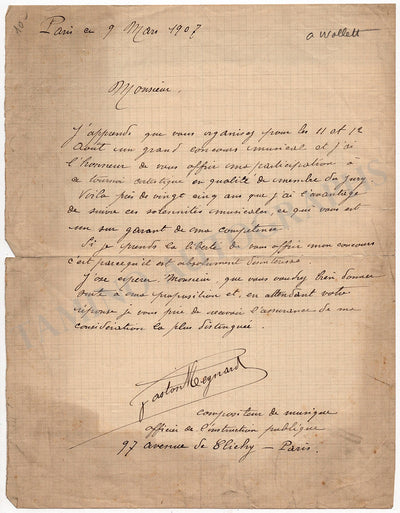 Paris ce 9 Mars 1907
a Wollett
Monsieur,
J'apprends que vous organisez pour les 11 et 12
Août un grand concours musical et j'ai
l'honneur de vous offrir ma participation à
ce tournoi artistique en qualité de membre du Jury.
Voilà près de vingt cinq ans que j'ai l'avantage
de suivre ces solennités musicales, ce qui vous est
un sur garant de ma compétence.
Si je prends la liberté de vous offrir mon concours
c'est parce qu'il est absolument
J'ose espérer Monsieur que vous voudrez bien donner
suite à ma proposition et, en attendant votre
réponse je vous prie de recevoir l'assurance de ma
considération la plus distinguée.
Gaston Meynard
compositeur de musique
officier de l'instruction publique
97 avenue de Clichy - Paris.